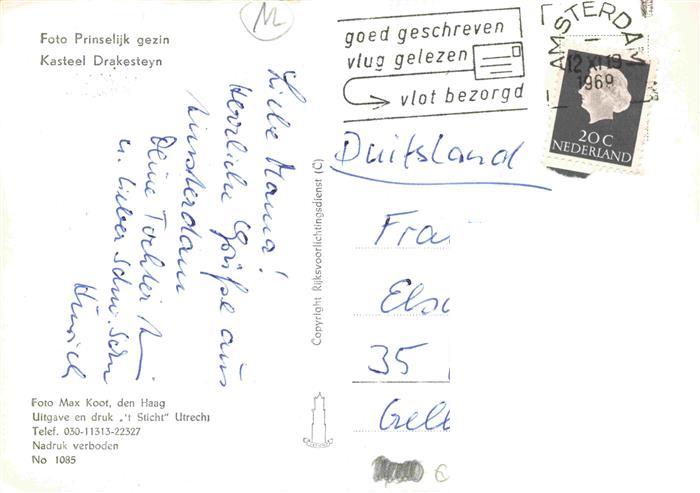 Foto Prinselijk gezin
Kasteel Drakesteyn
Liebe Mama!
Herzliche Grüße aus
Amsterdam
Deine Tochter
u. lieber Schw. Sohn
Hinrich
Foto Max Koot, den Haag
Uitgave en druk „'t Sticht” Utrecht
Telef. 030-11313-22327
Nadruk verboden
No 1085
Copyright Rijksvoorlichtingsdienst (C)
goed geschreven
vlug gelezen
vlot bezorgd
AMSTERDAM
12 XI 19
1969
20 C
NEDERLAND
Duitsland
Frau
Els
35
Gel